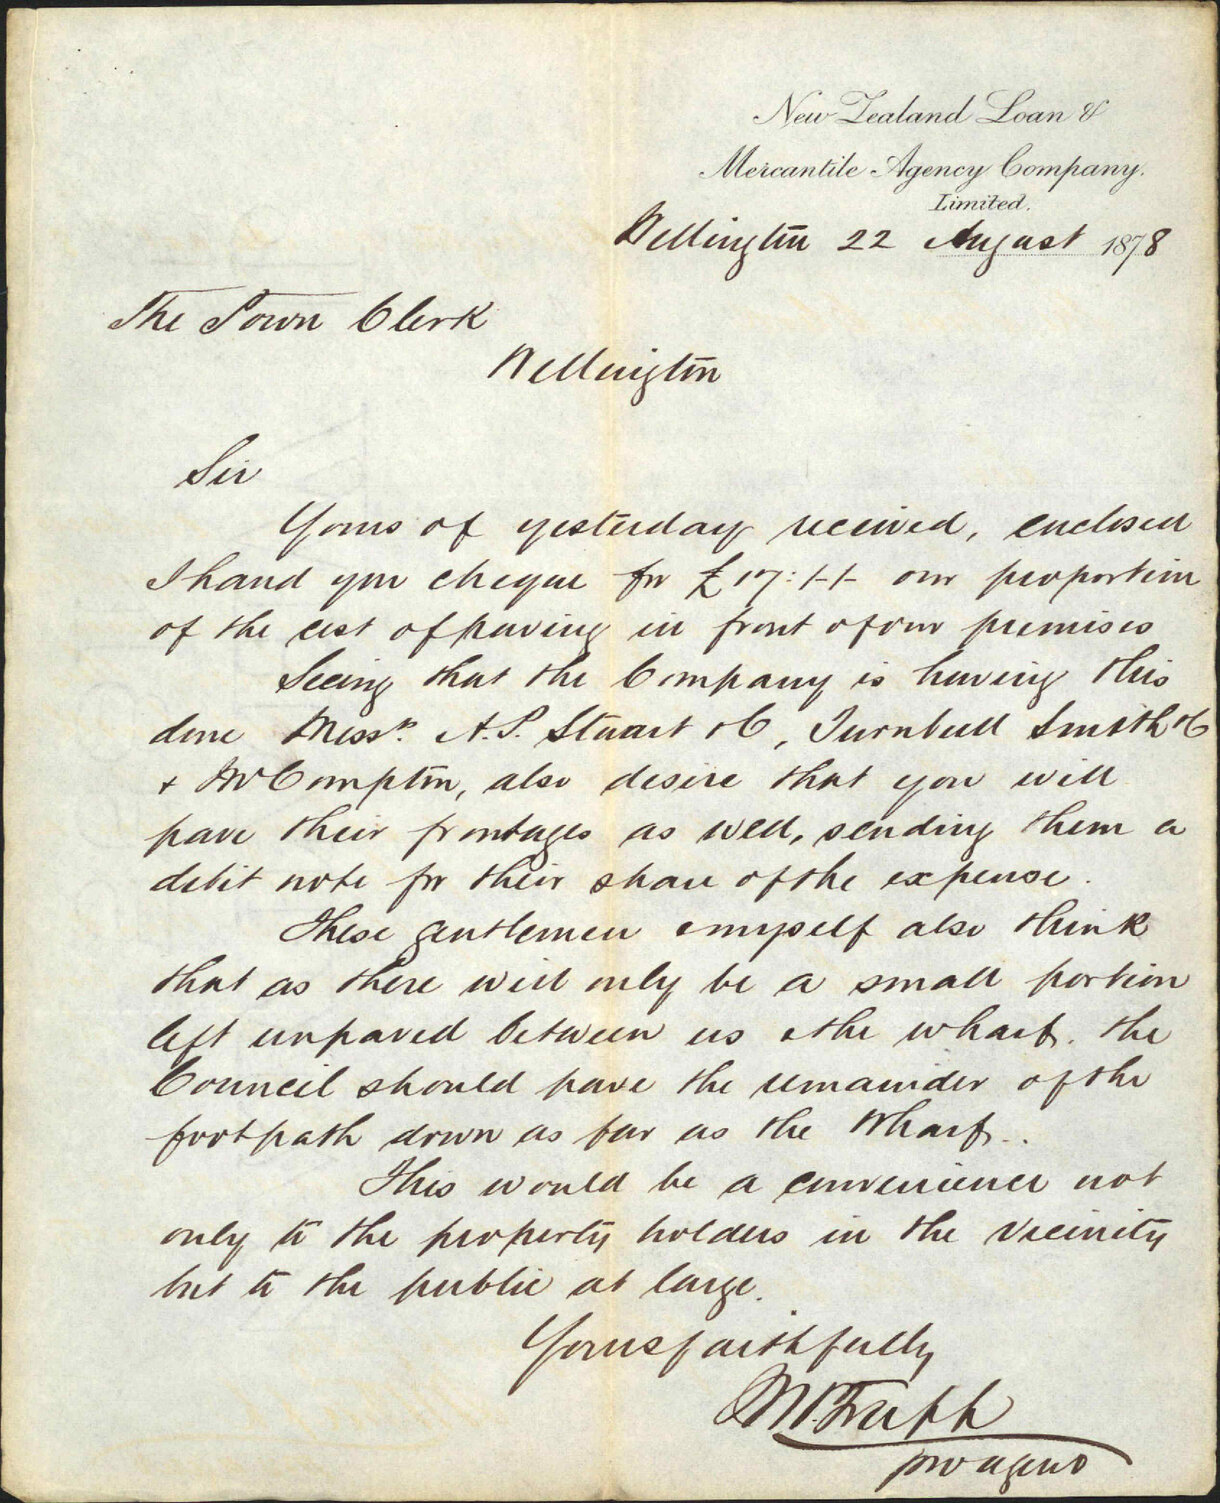 New Zealand Loan &
Mercantile Agency Company.
Limited.
Wellington 22 August 1878
The Town Clerk
Wellington
Sir
Yours of yesterday received, enclosed
I hand you cheque for £17:-/- our proportion
of the cost of paving in front of our premises
Seeing that the Company is having this
done Messrs. A.P. Stuart & C, Turnbull Smith & C
+ Compton, also desire that you will
pave their frontages as well, sending them a
debit note for their share of the expense.
These gentlemen & myself also think
that as there will only be a small portion
left unpaved between us & the wharf. the
Council should pave the remainder of the
footpath down as far as the Wharf..
This would be a convenience not
only to the property holders in the vicinity
but to the public at large.
Yours faithfully
pro agent